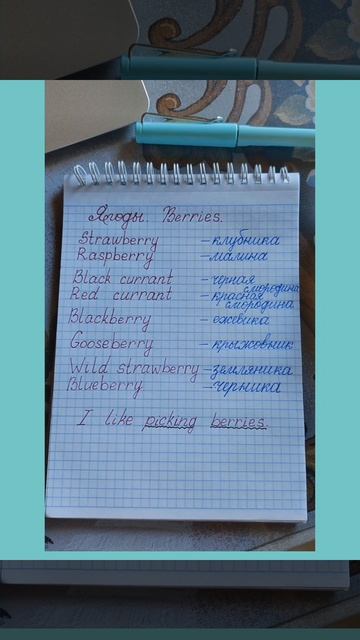 Ягоды. Berries.
Strawberry – клубника
Raspberry – малина
Black currant – чёрная смородина
Red currant – красная смородина
Blackberry – ежевика
Gooseberry – крыжовник
Wild strawberry – земляника
Blueberry – черника
I like picking berries.